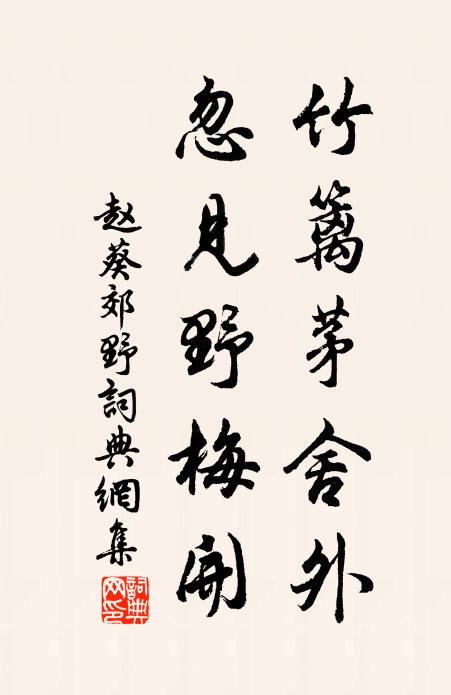 竹篱茅舍外
忽见野梅開
赵葵郊野詞典網集
詞典网印